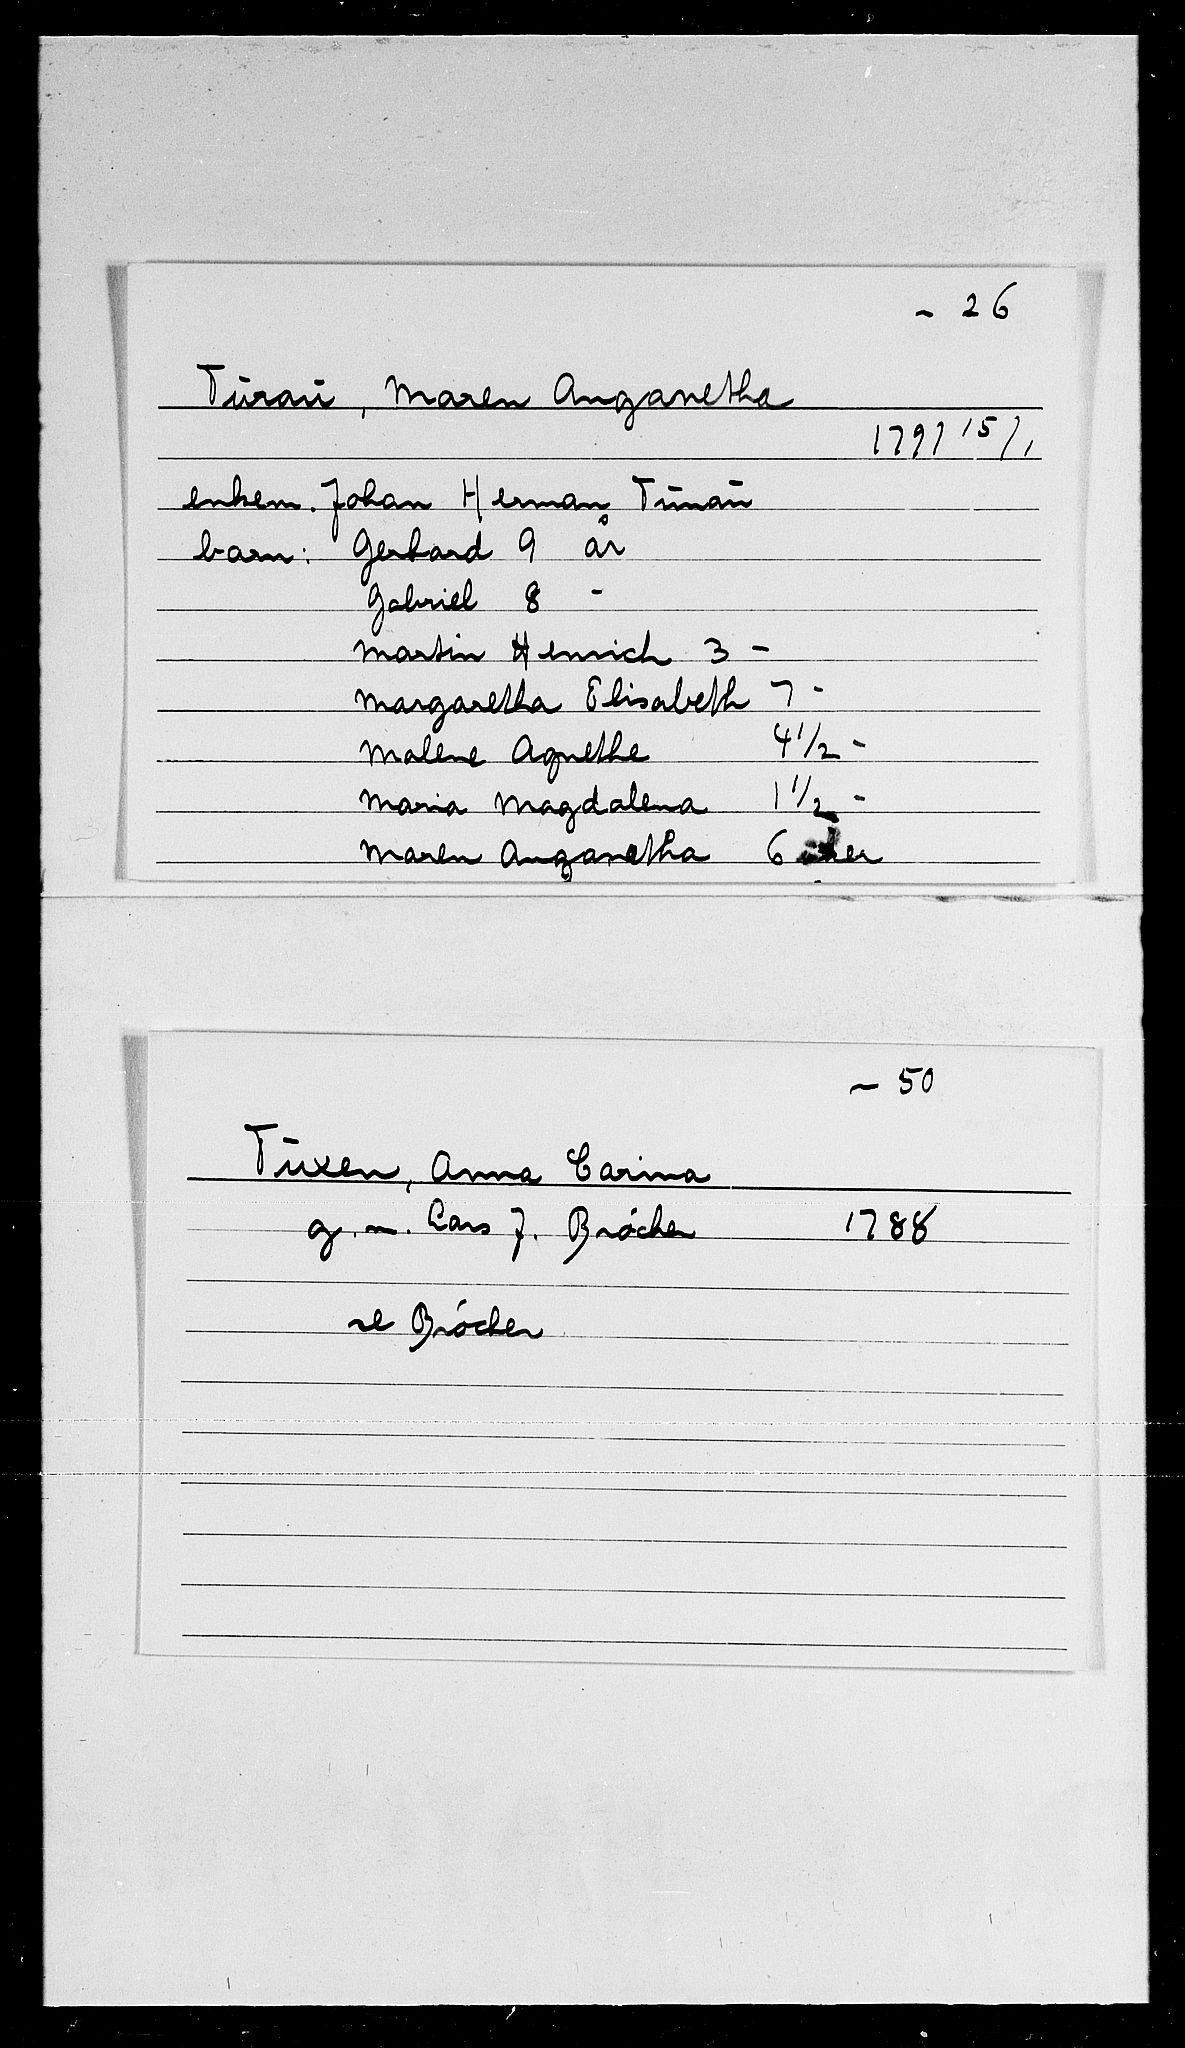 ~ 26
Turau, Maren Anganetha
1797 15/1
enkem. Johan Herman Turau
barn: Gerhard 9 år
Gabriel 8 -
Martin Henrich 3 -
Margaretha Elisabeth 7 -
Malene Agnethe 4 1/2 -
Maria Magdalena 1 1/2 -
Maren Anganetha 6 uker
~ 50
Tuxen, Anna Carina
g. m. Lars J. Bröcher 1788
se Bröcher